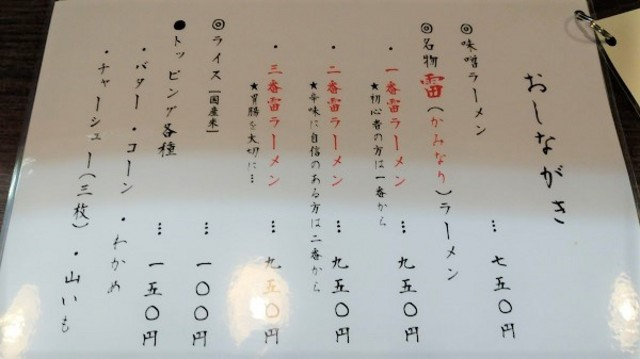 おしながき
◎味噌ラーメン … 七五〇円
◎名物 雷(かみなり)ラーメン
・一番雷ラーメン … 九五〇円
★初心者の方は一番から
・二番雷ラーメン … 九五〇円
★辛味に自信のある方は二番から
・三番雷ラーメン … 九五〇円
★胃腸を大切に…
◎ライス[国産米] … 一〇〇円
●トッピング各種 … 一五〇円
・バター ・コーン ・わかめ
・チャーシュー(三枚) ・山いも